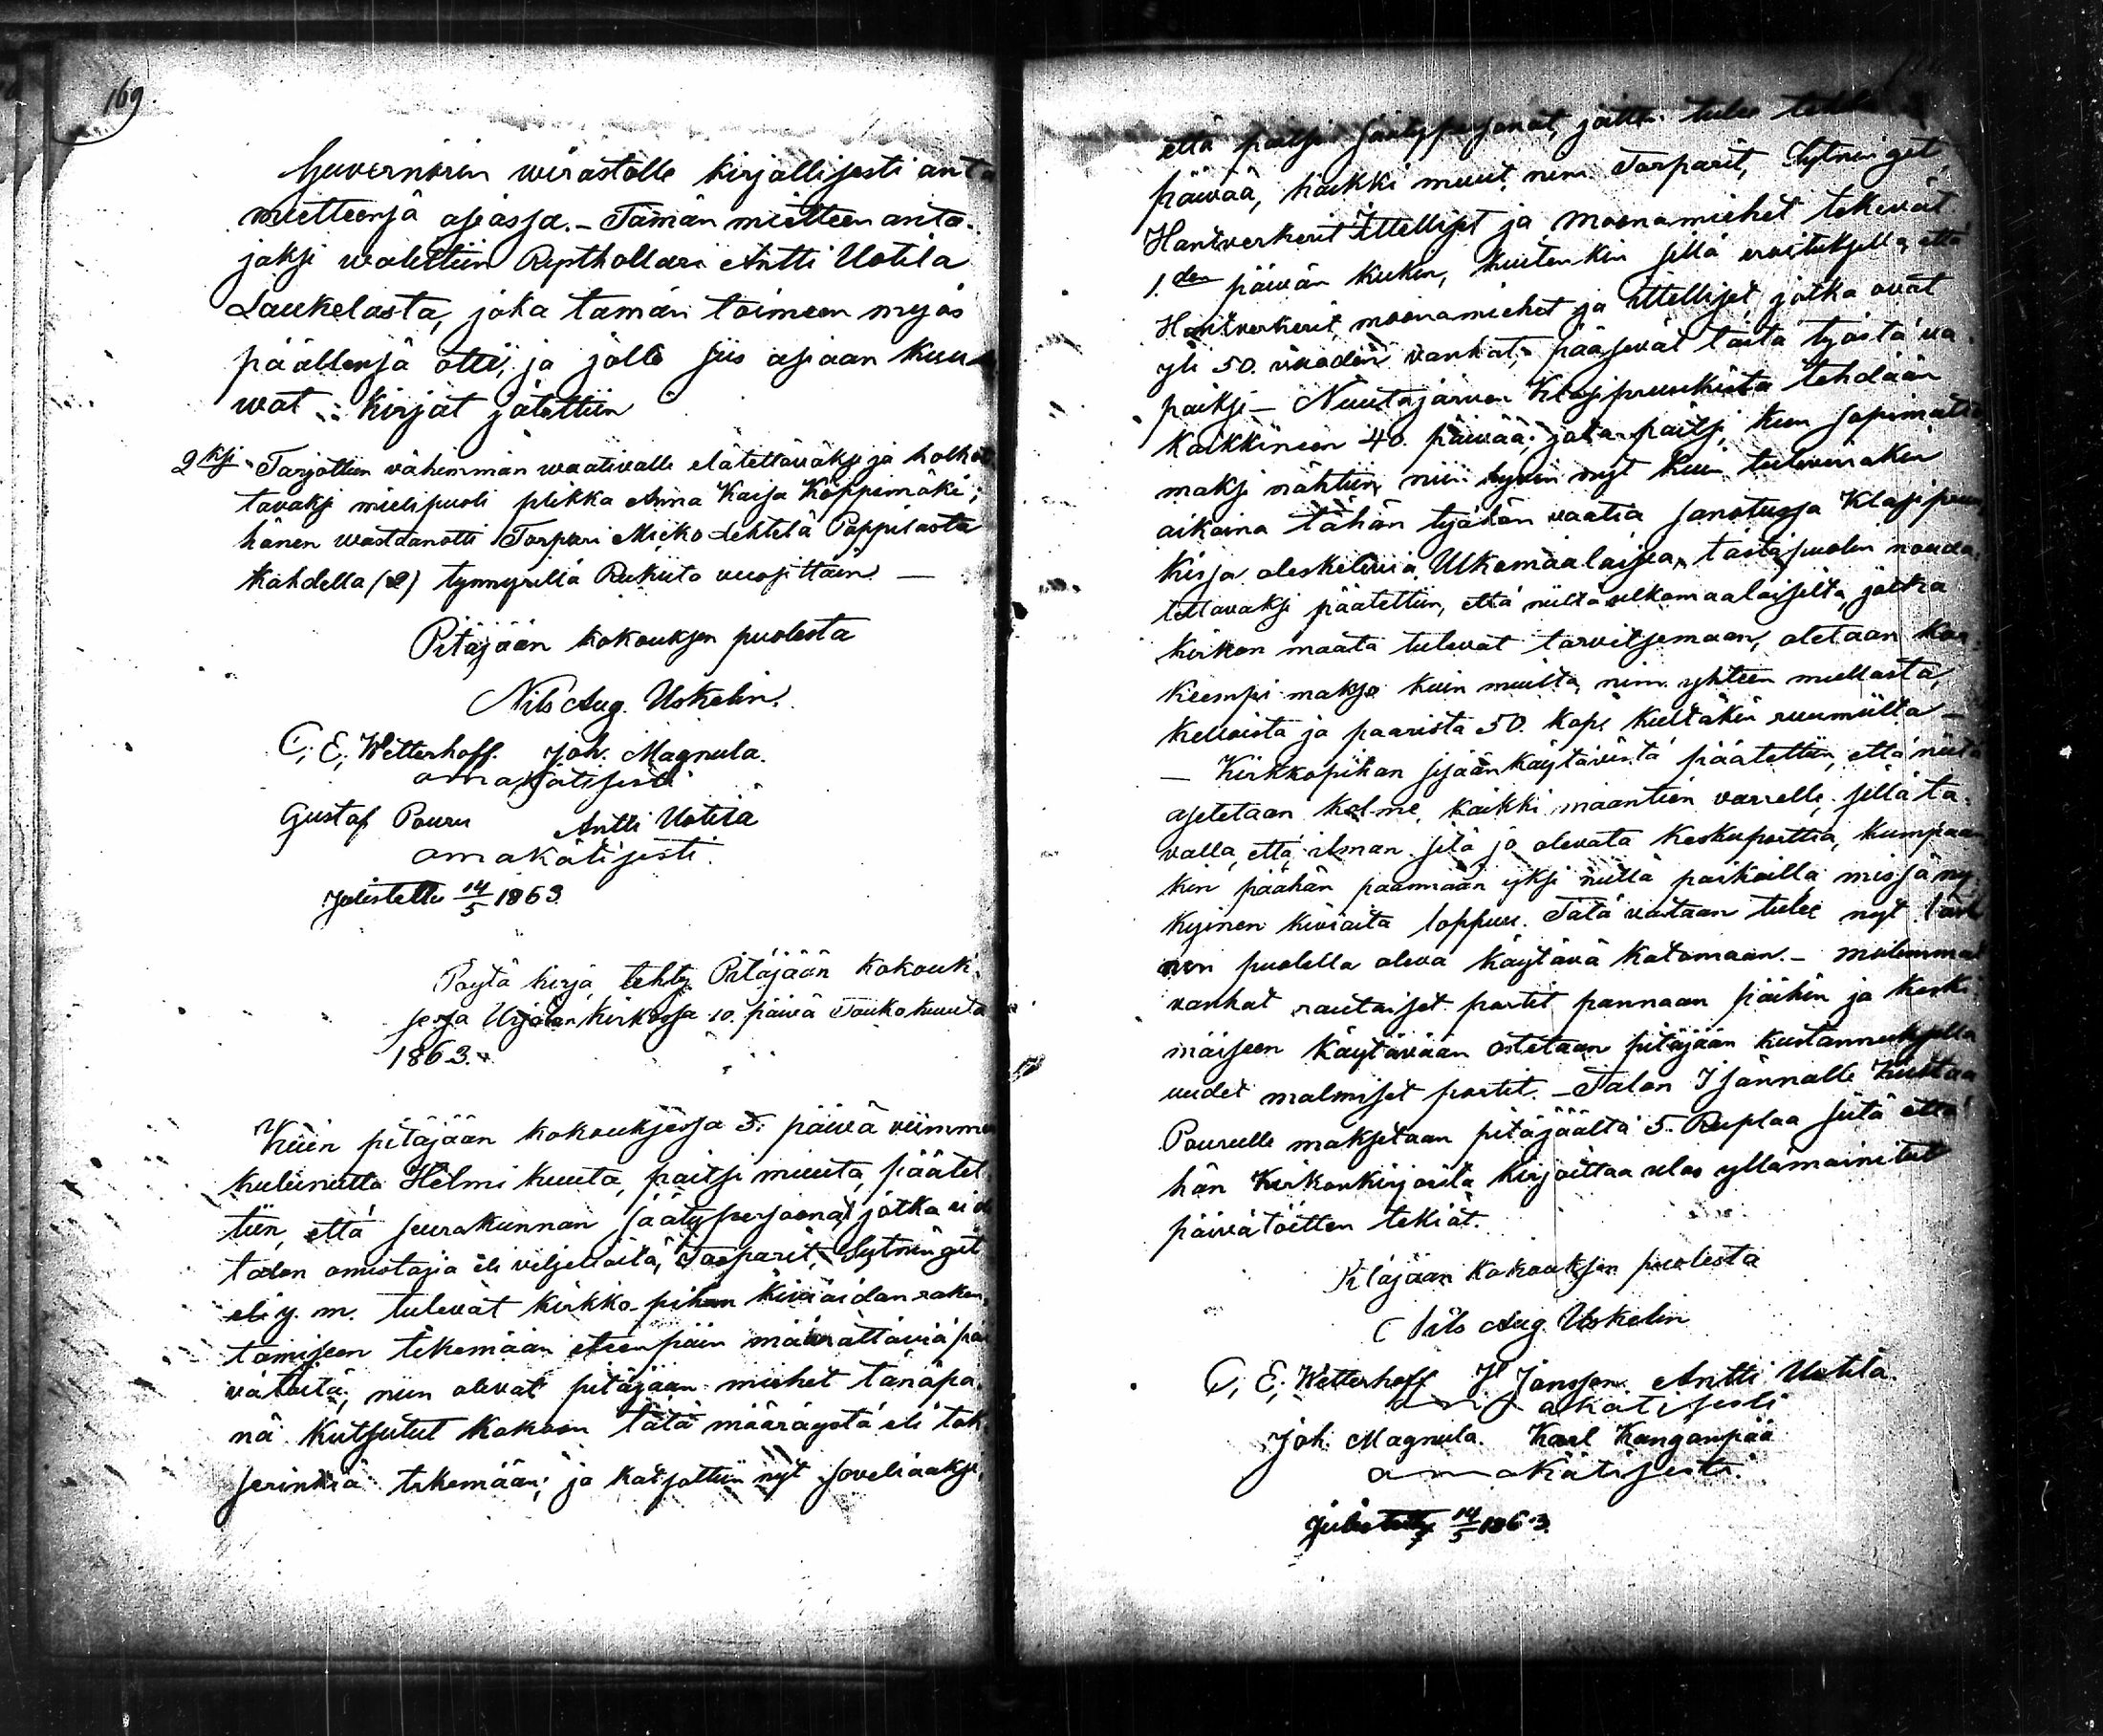 169
Guvernörin wirastolle kirjallisesti anta
mietteensä asiassa. – Tämän mietteen anta-
jaksi walittiin Rusthollari Antti Uotila
Laukelasta, joka tämän toimeen myös
päällensä otti, ja jolle siis asiaan kuu-
wat kirjat jätettiin
2ksi Tarjottiin vähimmän waativalle elätettäväksi ja holhot
tavaksi mielipuoli piikka Anna Kaisa Köppimäki;
hänen wastaanotti Torpari Micko Lehtelä Pappilasta
Kahdella (2) tynnyrillä Rukiita vuosittain. —
Pitäjään kokouksen puolesta
Nils Aug. Uskelin.
C. E. Wetterhoff. Joh. Magnula.
omakätisesti
Gustaf Pouru Antti Uotila
omakätisesti.
Julistettu 14/5 1863.
Pöytä kirja tehty Pitäjään kokouk-
sessa Urjalan kirkossa 10. päivä Toukokuuta
1863.
Kuin pitäjään kokouksessa 5. päivä viimme
kulunutta Helmi kuuta, paitsi muuta, päätet
tiin, että seurakunnan säätypersoonat jotka ei ole
talon omistajia eli viljeliöitä, Torparit, Sytningit
eli y. m. tulevat kirkko-pihan kiviaidan raken-
tamiseen tekemään eteenpäin määrättäviä päi
vätöitä; niin olivat pitäjään miehet tänäpä-
nä kutsutut kokoon tätä määräystä eli tak-
serinkiä tekemään; ja katsottiin nyt soveliaaksi,
että paitsi säätypersonat, joitten tulee tehdä
päivää, kaikki muut, nim. Torparit, Sytningit,
Hantverkerit Ittelliset ja moonamiehet tekevät
1.den päivän kukin, kuitenkin sillä eroituksella, että
Hantverkerit, moonamiehet ja ittelliset jotka ovat
yli 50. vuoden vanhat, pääsevät tästä työstä va-
paiksi – Nuutajärven Klasipruukista tehdään
Kaikkineen 40. päivää; jota paitsi, kun sopimatto
maksi nähtiin, niin hyvin nyt kuin tulevinakin
aikoina tähän työhön vaatia sanotussa Klasipruu
kissa oleskelevia Ulkomaalaisia, tästäpuolen nouda-
tettavaksi päätettiin, että niiltä ulkomaalaisilta, jotka
kirkon maata tulevat tarvitsemaan, otetaan kor-
keempi maksu kuin muilta, nim. yhteen mullasta,
kelloista ja paarista 50. kop. kultakin ruumiilta –
— Kirkkopihan sisäänkäytävistä päätettiin, että niitä
asetetaan kolme, kaikki maantien varrelle, sillä ta-
valla, että, ilman sitä jo olevata keskiporttia, kumpaan
kin päähän pannaan yksi niillä paikoilla missä ny-
kyinen kiviaita loppuu. Tätä vastaan tulee nyt länti
nen puolella oleva käytävä katomaan. – molemmat
vanhat rautaiset portit pannaan päihin ja keski
mäiseen käytävään ostetaan pitäjään kustannuksella
uudet malmiset portit. – Talon Isännälle Kustaa
Pourulle maksetaan pitäjäältä 5. Ruplaa siitä että
hän Kirkonkirjoista kirjoittaa ulos yllämainitut
päivätöitten tekiät.
Pitäjään Kokouksen puolesta
Nils Aug. Uskelin
C. E. Wetterhoff Jansson. Antti Uotila.
omakätisesti
Joh. Magnula. Karl Kanganpää
omakätisesti.
Julistettu 14/5 1863.